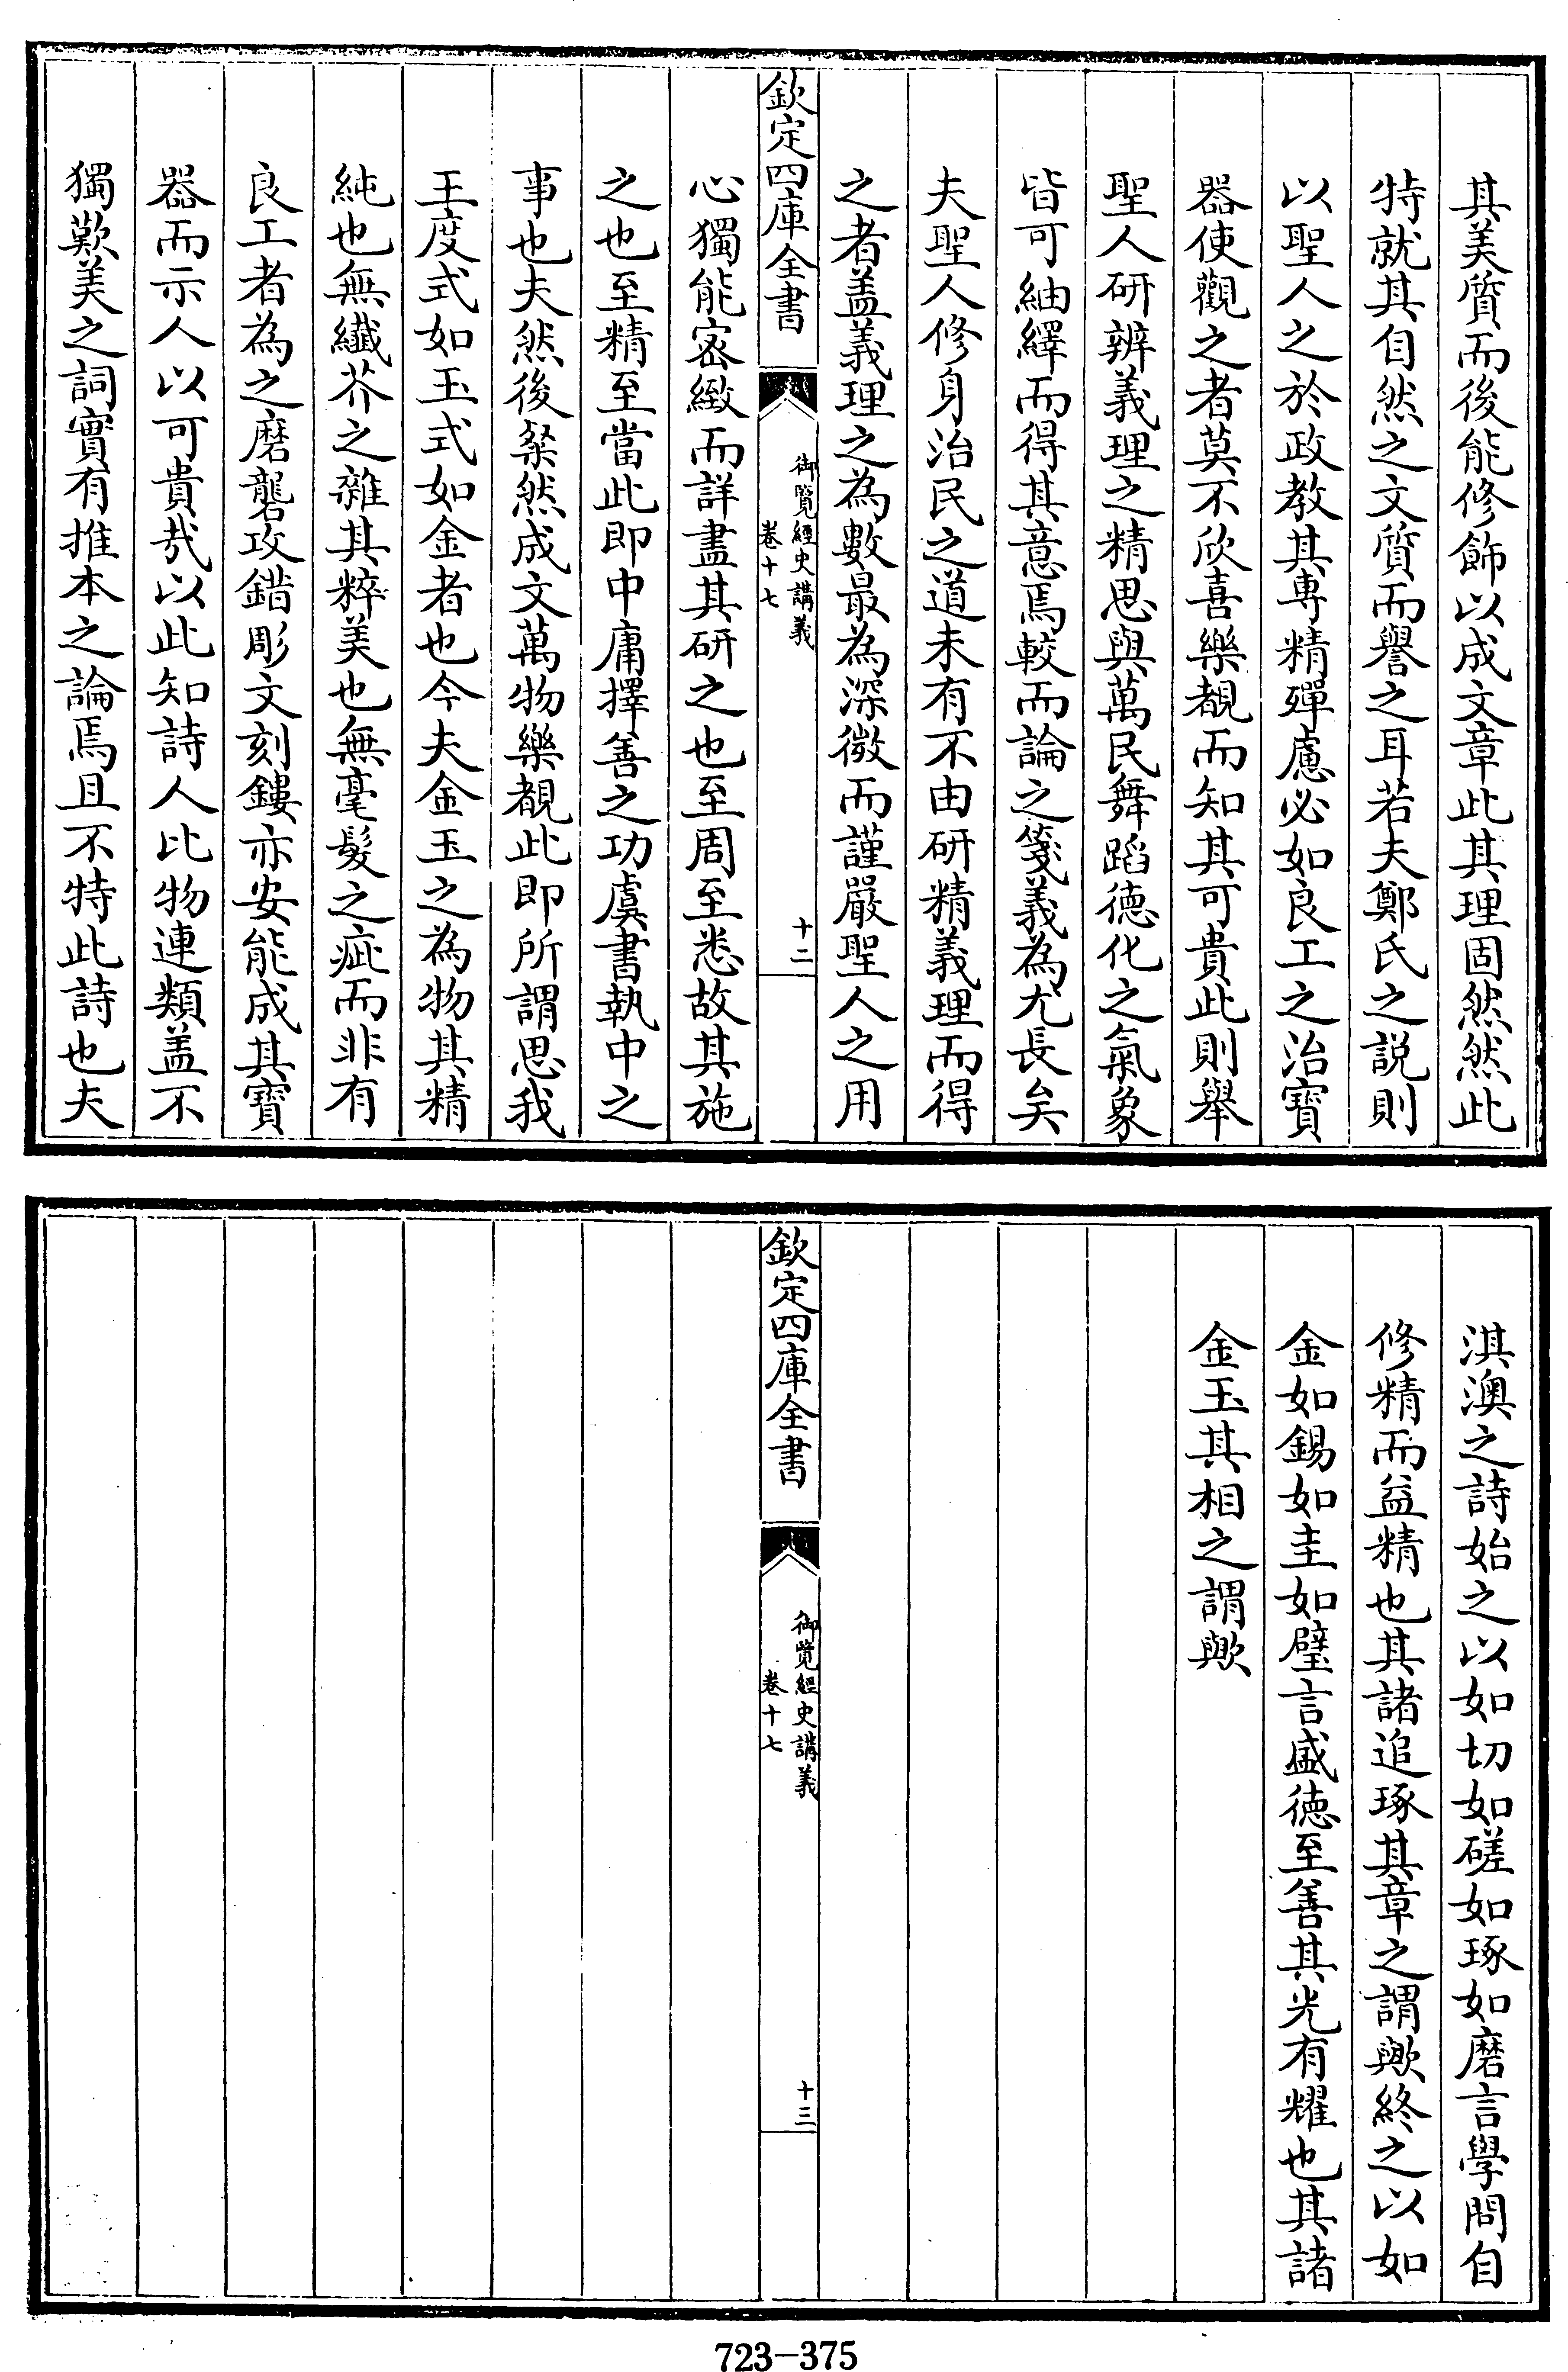 其美質而後能修飾以成文章此其理固然然此
特就其自然之文質而譽之耳若夫鄭氏之說則
以聖人之於政教其專精殫慮必如良工之治寶
器使觀之者莫不欣喜樂覩而知其可貴此則舉
聖人研辨義理之精思與萬民舞蹈德化之氣象
皆可紬繹而得其意焉較而論之箋義為尤長矣
夫聖人修身治民之道未有不由研精義理而得
之者葢義理之為數最為深微而謹嚴聖人之用
欽定四庫全書
御覽經史講義
卷十七
十二
心獨能密緻而詳盡其研之也至周至悉故其施
之也至精至當此即中庸擇善之功虞書執中之
事也夫然後粲然成文萬物樂覩此即所謂思我
王度式如玉式如金者也今夫金玉之為物其精
純也無纖芥之雜其粹美也無毫髮之疵而非有
良工者為之磨礲攻錯彫文刻鏤亦安能成其寶
器而示人以可貴哉以此知詩人比物連類葢不
獨歎美之詞實有推本之論焉且不特此詩也夫
淇澳之詩始之以如切如磋如琢如磨言學問自
修精而益精也其諸追琢其章之謂歟終之以如
金如錫如圭如璧言盛德至善其光有耀也其諸
金玉其相之謂歟
欽定四庫全書
御覽經史講義
卷十七
十三
723-375